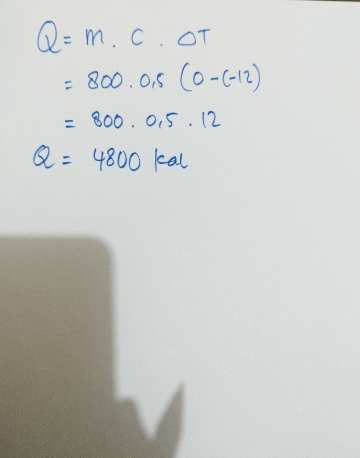 Q = m . c . ΔT
= 800 . 0,5 (0-(-12)
= 800 . 0,5 . 12
Q = 4800 kal